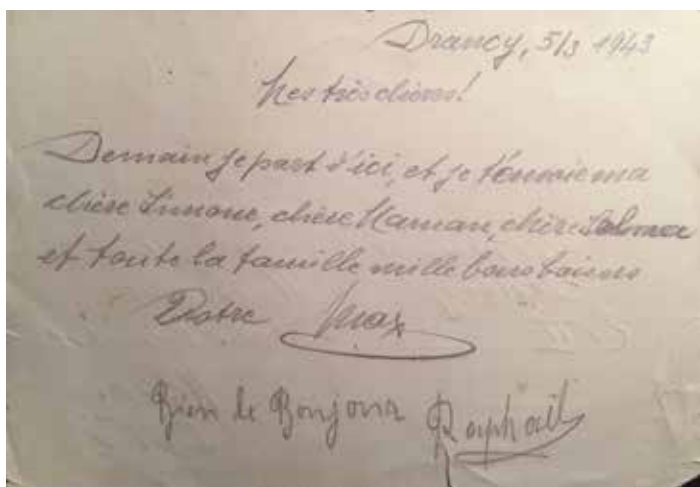 Drancy, 5/3 1943
Mes très chers!
Demain je part d'ici, et je t'envoie ma
chère Simone, chère Maman, chère Selma
et toute la famille mille bons baisers
Votre Max
Bien le Bonjour Raphaël